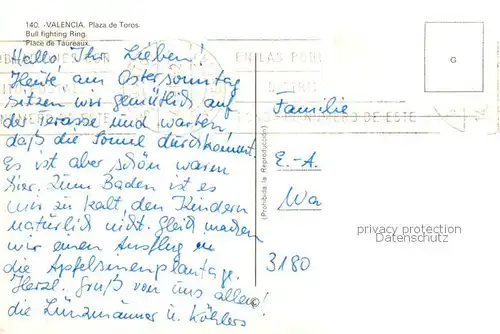 140. -VALENCIA. Plaza de Toros.
Bull fighting Ring.
Place de Taureaux.
Hallo Ihr Lieben!
Heute am Ostersonntag
sitzen wir gemütlich auf
der Terasse und warten,
daß die Sonne durchkommt.
Es ist aber schön warm
hier. Zum Baden ist es
mir zu kalt, den Kindern
natürlich nicht. Gleich machen
wir einen Ausflug in
die Apfelsinenplantage.
Herzl. Gruß von uns allen!
die Lünzmänner u. Köhlers
EN LAS POBL
NUMERO DE ESTE
(Prohibida la Reproducción)
G
Familie
E.-A.
Wa
3180
privacy protection
Datenschutz